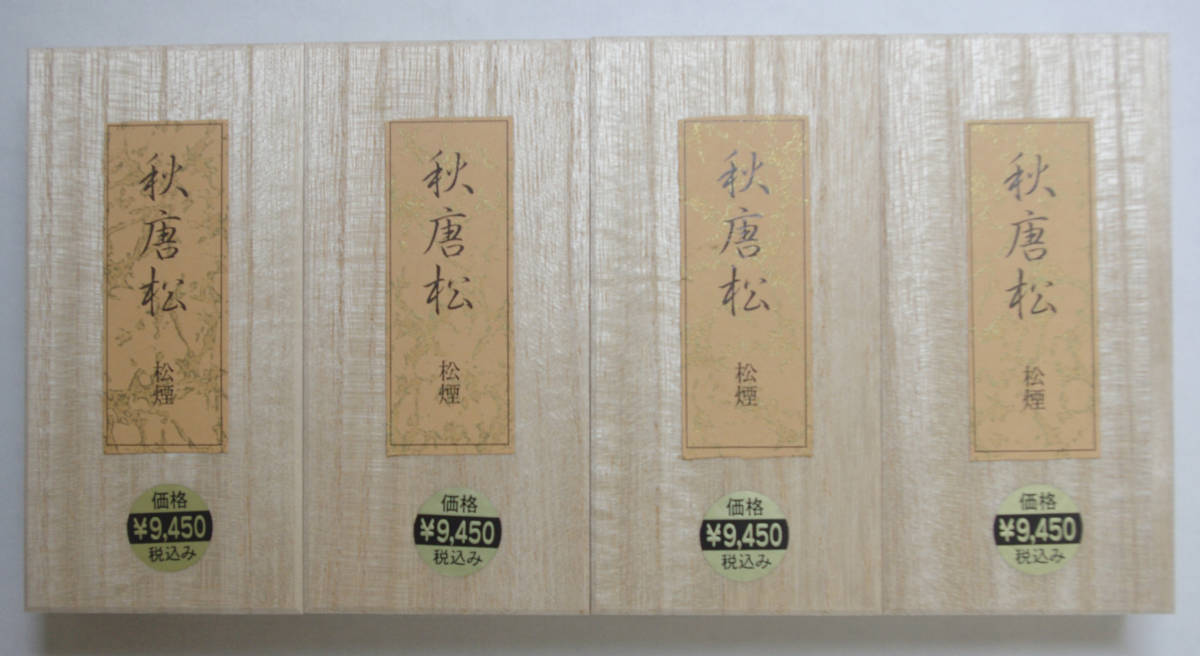 秋唐松
松煙
価格
¥9,450
税込み
秋唐松
松煙
価格
¥9,450
税込み
秋唐松
松煙
価格
¥9,450
税込み
秋唐松
松煙
価格
¥9,450
税込み